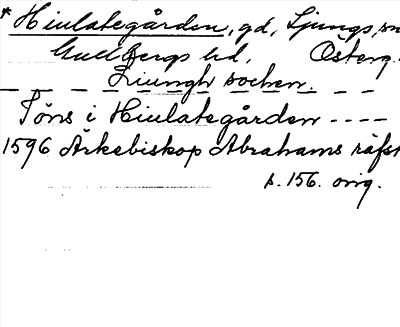 * Hiulategården, gd, Ljungs, sn
Gullbergs hd, Österg.
_ _ Liungh sochen. _ _
Töns i Hiulategården ----
1596 Ärkebiskop Abrahams räfst
s. 156. orig.